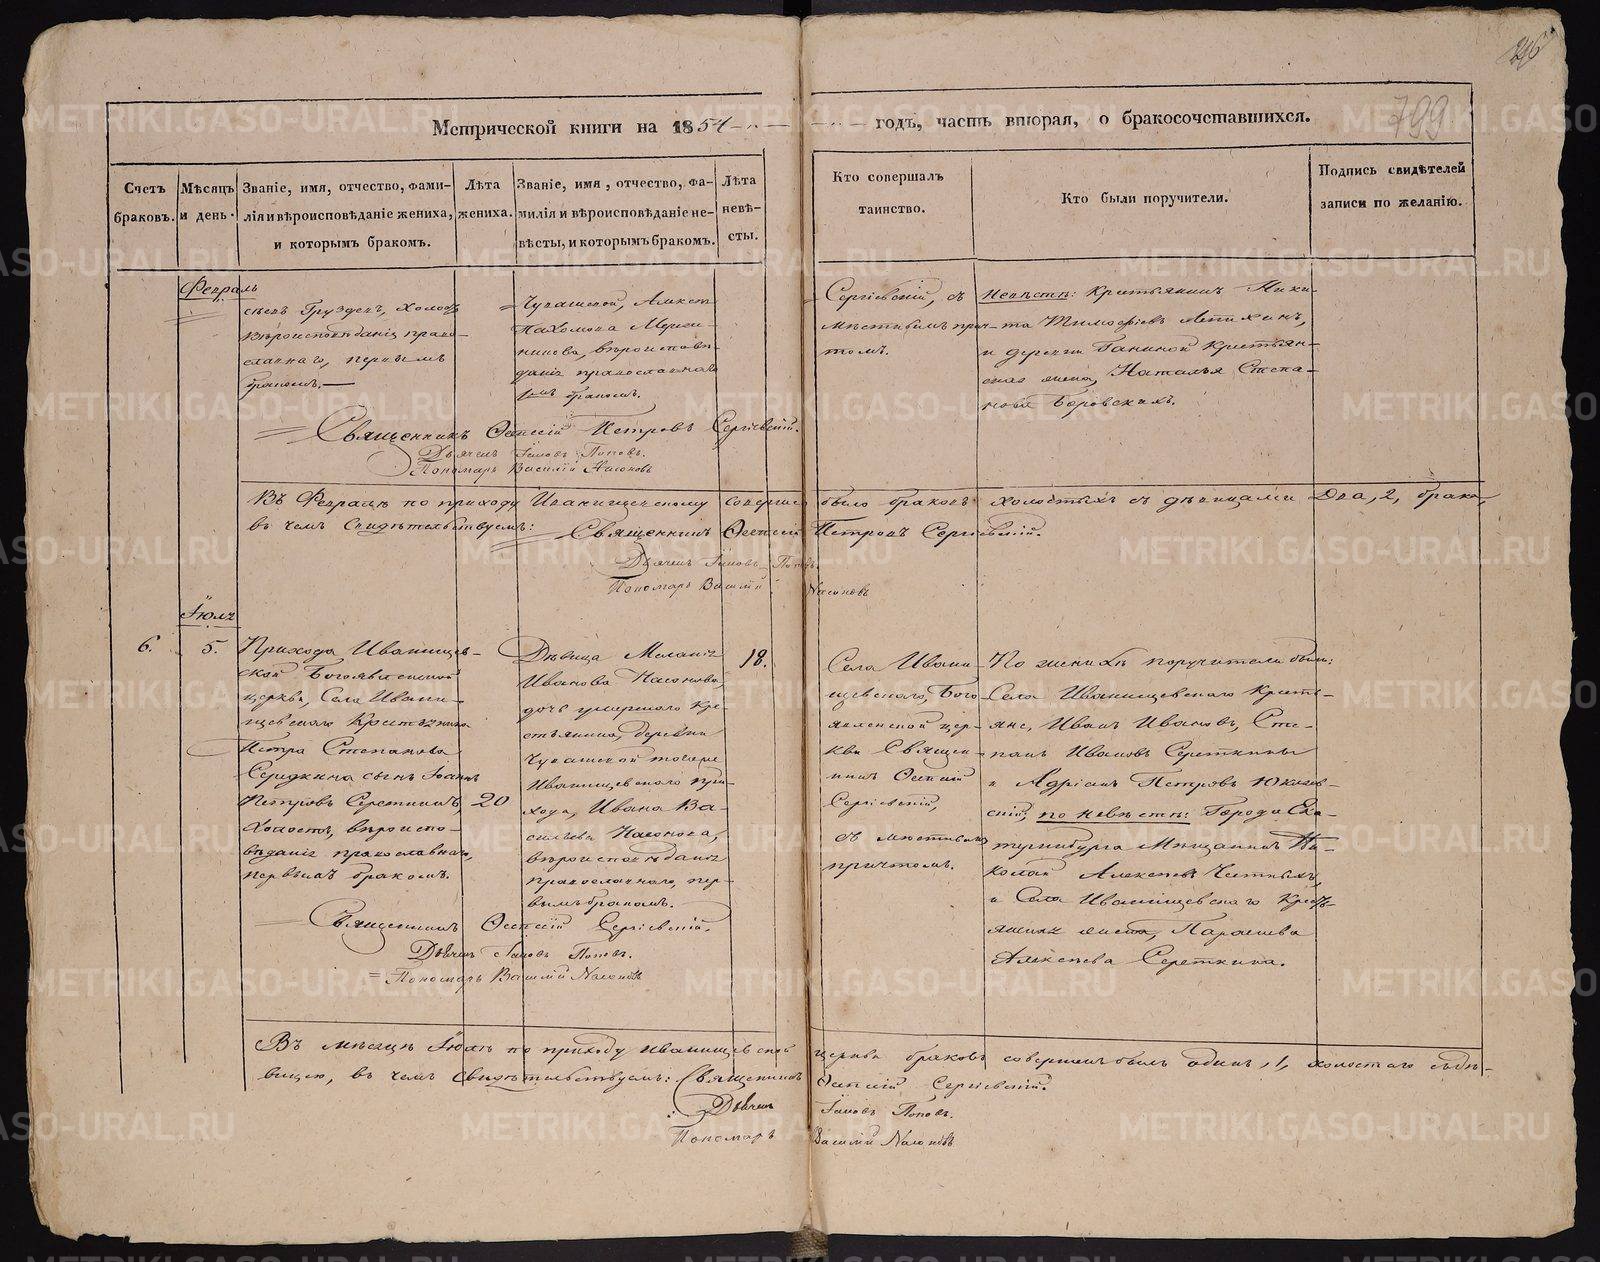 246
799
Метрической книги на 1854 годъ, часть вторая, о бракосочетавшихся.
Счетъ браковъ.
Мѣсяцъ и день.
Званіе, имя, отчество, фами-
лія и вѣроисповѣданіе жениха,
и которымъ бракомъ.
Лѣта
жениха.
Званіе, имя, отчество, фа-
милія и вѣроисповѣданіе не-
вѣсты, и которымъ бракомъ.
Лѣта
невѣ-
сты.
Кто совершалъ
таинство.
Кто были поручители.
Подпись свидѣтелей
записи по желанію.
Февраль
Груздевъ, холостъ
вѣроисповѣданія право-
славнаго, первымъ
бракомъ.
Чувашевой,
Пахомова
вѣроисповѣ-
данія православнаго
бракомъ.
Сергіевскій, съ
мѣстнымъ прич-
томъ.
Невѣстѣ: Крестьянинъ Ники-
та Тимофѣевъ
и деревни Ганиной Крестьян-
ская жена, Наталья Степа-
нова Боровскихъ.
Священникъ Евсевій Петровъ Сергіевскій.
Дьячекъ Іаковъ Поповъ.
Пономарь Василій Насоновъ
Въ Февралѣ по приходу Иванищевскому совершено было браковъ холостыхъ съ дѣвицами два, 2, брака,
въ чемъ свидѣтельствуемъ: Священникъ Евсевій Петровъ Сергіевскій.
Дьячекъ Іаковъ Поповъ.
Пономарь Василій Насоновъ
Іюль
6.
5.
Прихода Иванищев-
ской Богоявленской
церкви, Села Ивани-
щевскаго Крестьянина
Петра Степанова
Середкина сынъ Іоаннъ
Петровъ Середкинъ,
холостъ, вѣроиспо-
вѣданія православнаго,
первымъ бракомъ.
20
Дѣвица Меланія
Иванова Насонова,
дочь умершаго Кре-
стьянина, деревни
Чувашевой тогоже
Иванищевскаго при-
хода, Ивана Ва-
сильева Насонова,
вѣроисповѣданія
православнаго, пер-
вымъ бракомъ.
18.
Села Ивани-
щевскаго, Бого-
явленской цер-
кви Священ-
никъ Евсевій
Сергіевскій,
съ мѣстнымъ
причтомъ.
По женихѣ поручители были:
Села Иванищевскаго Кресть-
яне, Иванъ Ивановъ, Сте-
панъ Ивановъ Середкины
и Адріанъ Петровъ
по невѣстѣ: Города Ека-
теринбурга Мѣщанинъ Ни-
колай Алексѣевъ
и Села Иванищевскаго Кресть-
янская жена, Парасковья
Алексѣева Середкина.
Священникъ Евсевій Сергіевскій.
Дьячекъ Іаковъ Поповъ.
Пономарь Василій Насоновъ
Въ мѣсяцѣ Іюлѣ по приходу Иванищевской церкви браковъ совершенъ былъ одинъ, 1, холостаго съ дѣ-
вицею, въ чемъ свидѣтельствуемъ: Священникъ Евсевій Сергіевскій.
Дьячекъ Іаковъ Поповъ.
Пономарь Василій Насоновъ
METRIKI.GASO-URAL.RU